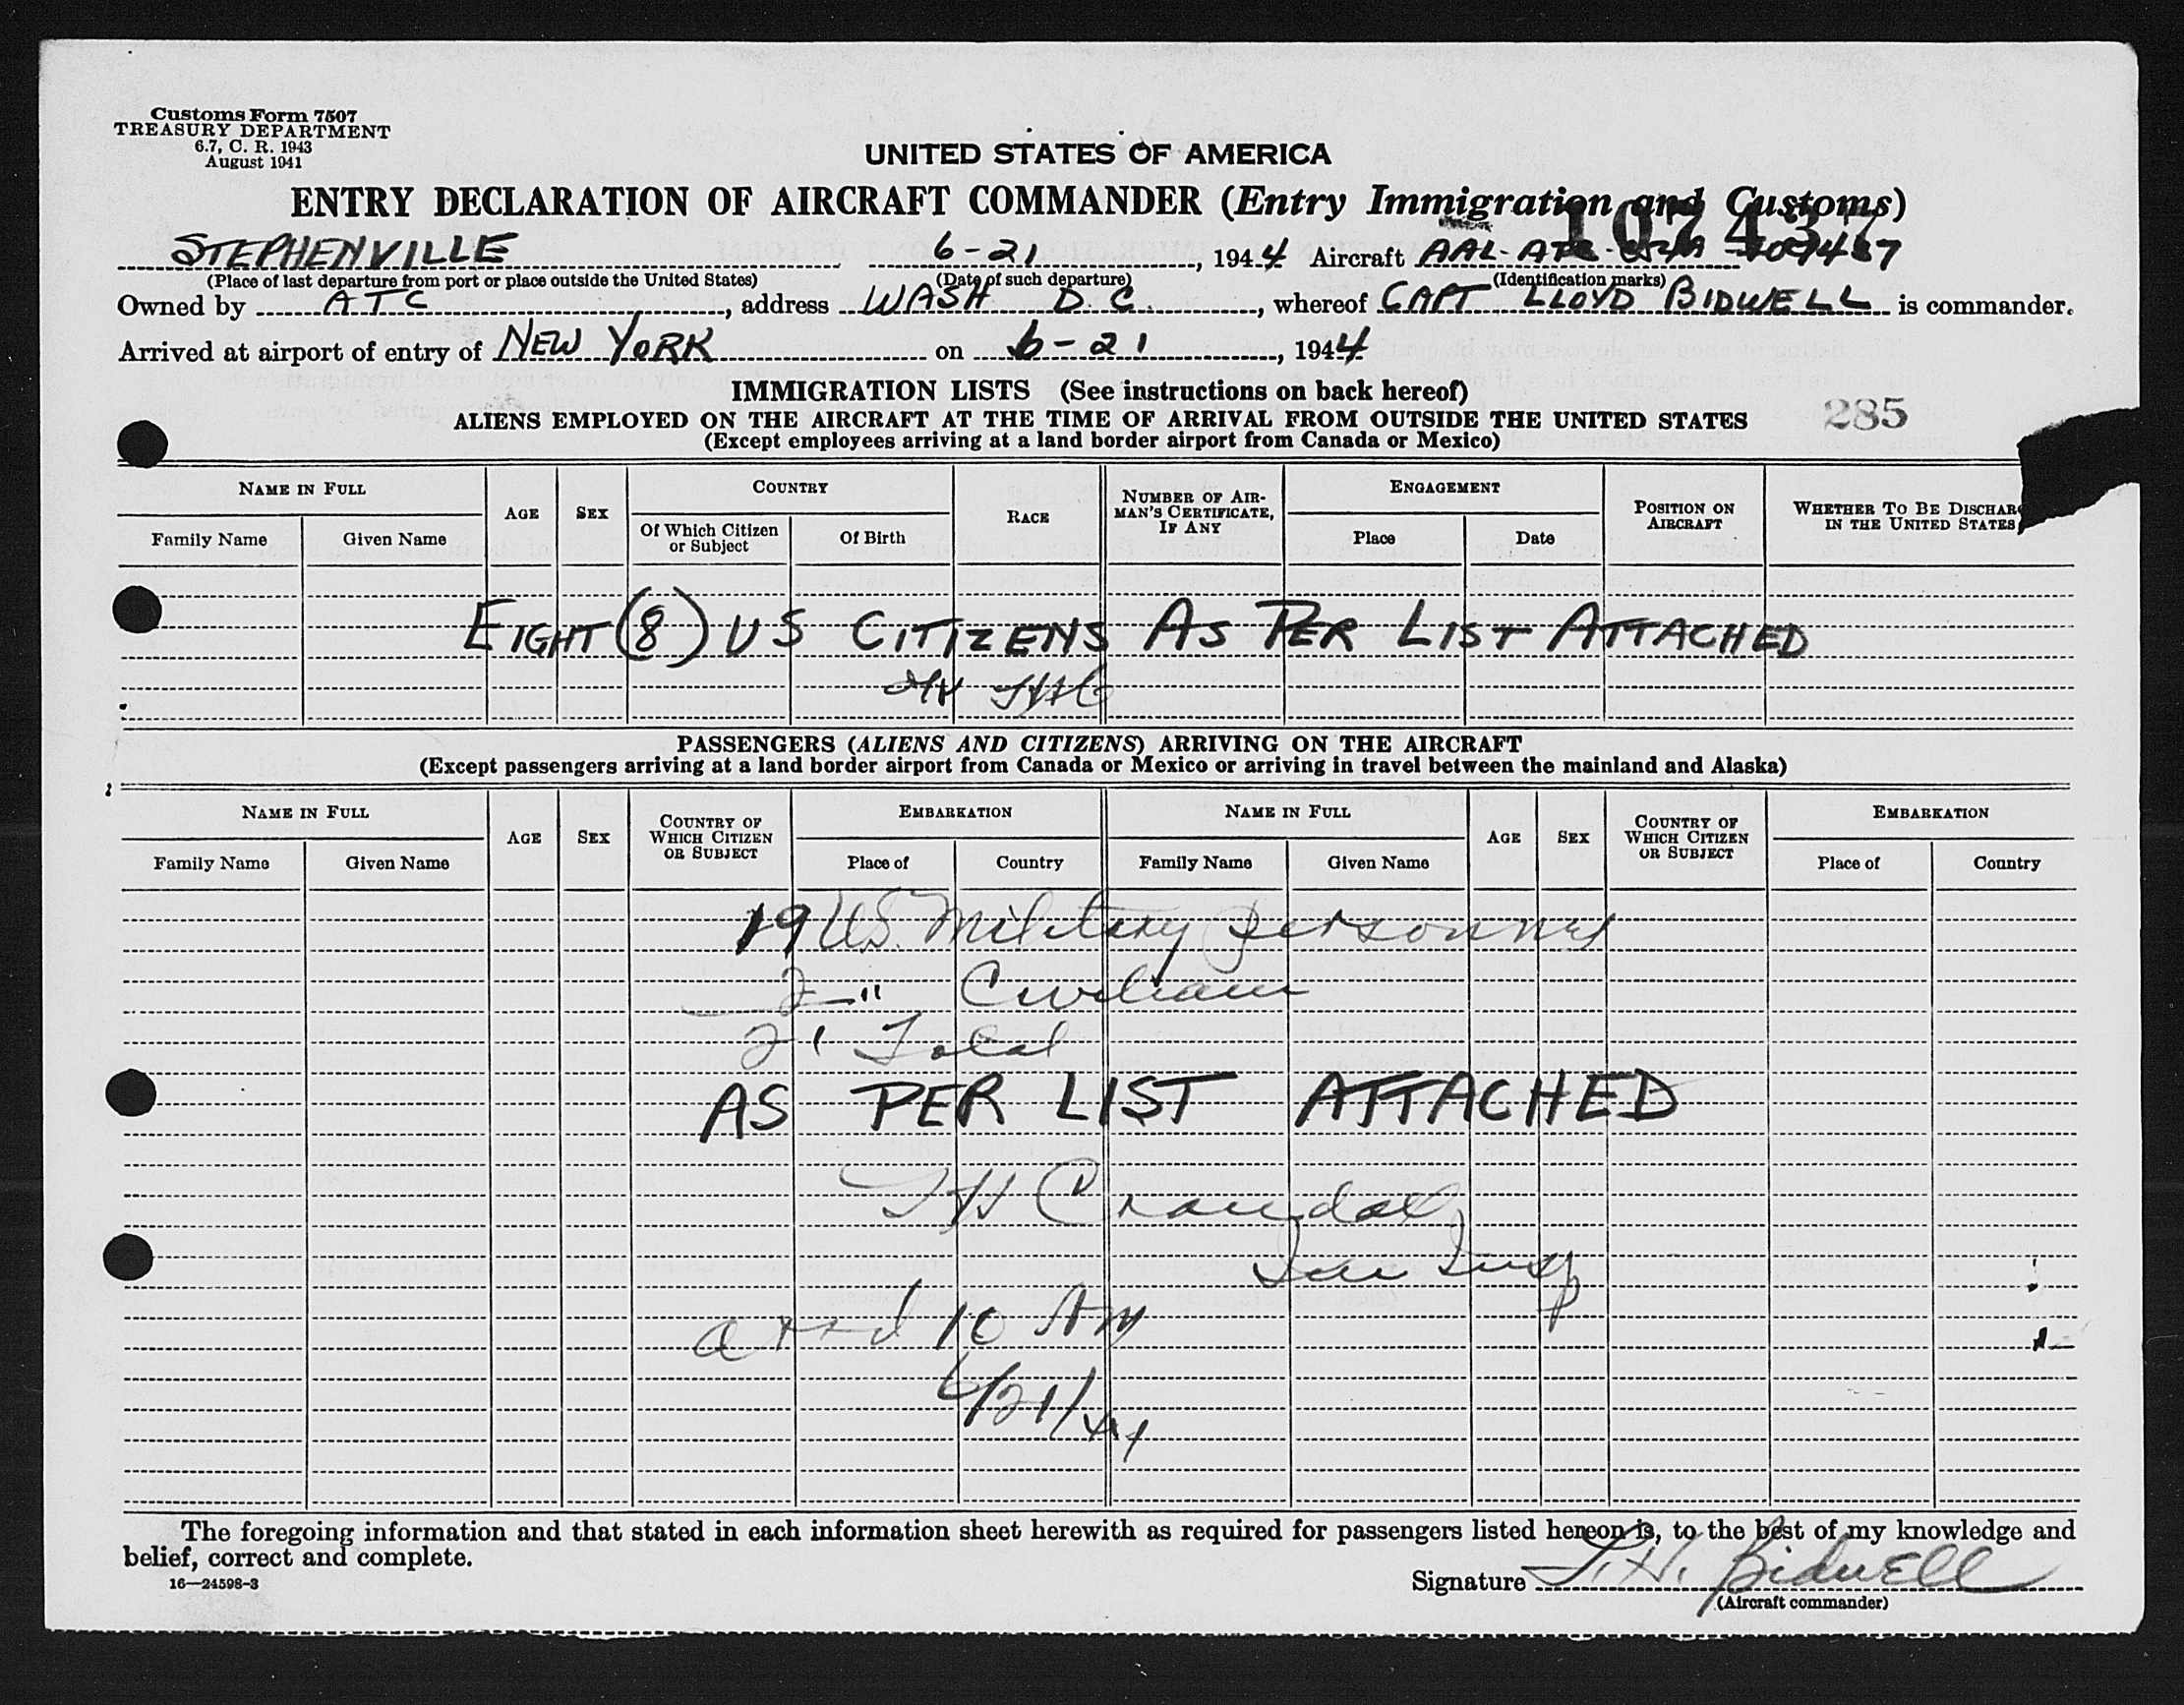 Customs Form 7507
TREASURY DEPARTMENT
6.7, C. R. 1943
August 1941
UNITED STATES OF AMERICA
ENTRY DECLARATION OF AIRCRAFT COMMANDER (Entry Immigration and Customs)
107437
STEPHENVILLE 6-21, 1944 Aircraft AAL-ATC
(Place of last departure from port or place outside the United States) (Date of such departure) (Identification marks)
Owned by ATC, address WASH D.C., whereof CAPT LLOYD BIDWELL is commander.
Arrived at airport of entry of NEW YORK on 6-21, 1944
IMMIGRATION LISTS (See instructions on back hereof)
ALIENS EMPLOYED ON THE AIRCRAFT AT THE TIME OF ARRIVAL FROM OUTSIDE THE UNITED STATES 285
(Except employees arriving at a land border airport from Canada or Mexico)
NAME IN FULL AGE SEX COUNTRY RACE NUMBER OF AIRMAN'S CERTIFICATE, IF ANY ENGAGEMENT POSITION ON AIRCRAFT WHETHER TO BE DISCHAR IN THE UNITED STATES
Family Name Given Name Of Which Citizen or Subject Of Birth Place Date
EIGHT (8) US CITIZENS AS PER LIST ATTACHED
PASSENGERS (ALIENS AND CITIZENS) ARRIVING ON THE AIRCRAFT
(Except passengers arriving at a land border airport from Canada or Mexico or arriving in travel between the mainland and Alaska)
NAME IN FULL AGE SEX COUNTRY OF WHICH CITIZEN OR SUBJECT EMBARKATION NAME IN FULL AGE SEX COUNTRY OF WHICH CITIZEN OR SUBJECT EMBARKATION
Family Name Given Name Place of Country Family Name Given Name Place of Country
19 US. Military personnel
2 " Civilian
21 Total
AS PER LIST ATTACHED
Crandall
Imm Insp
arrd 10 AM
6/21/44
The foregoing information and that stated in each information sheet herewith as required for passengers listed hereon is, to the best of my knowledge and
belief, correct and complete.
16—24598-3
Signature L.H. Bidwell
(Aircraft commander)